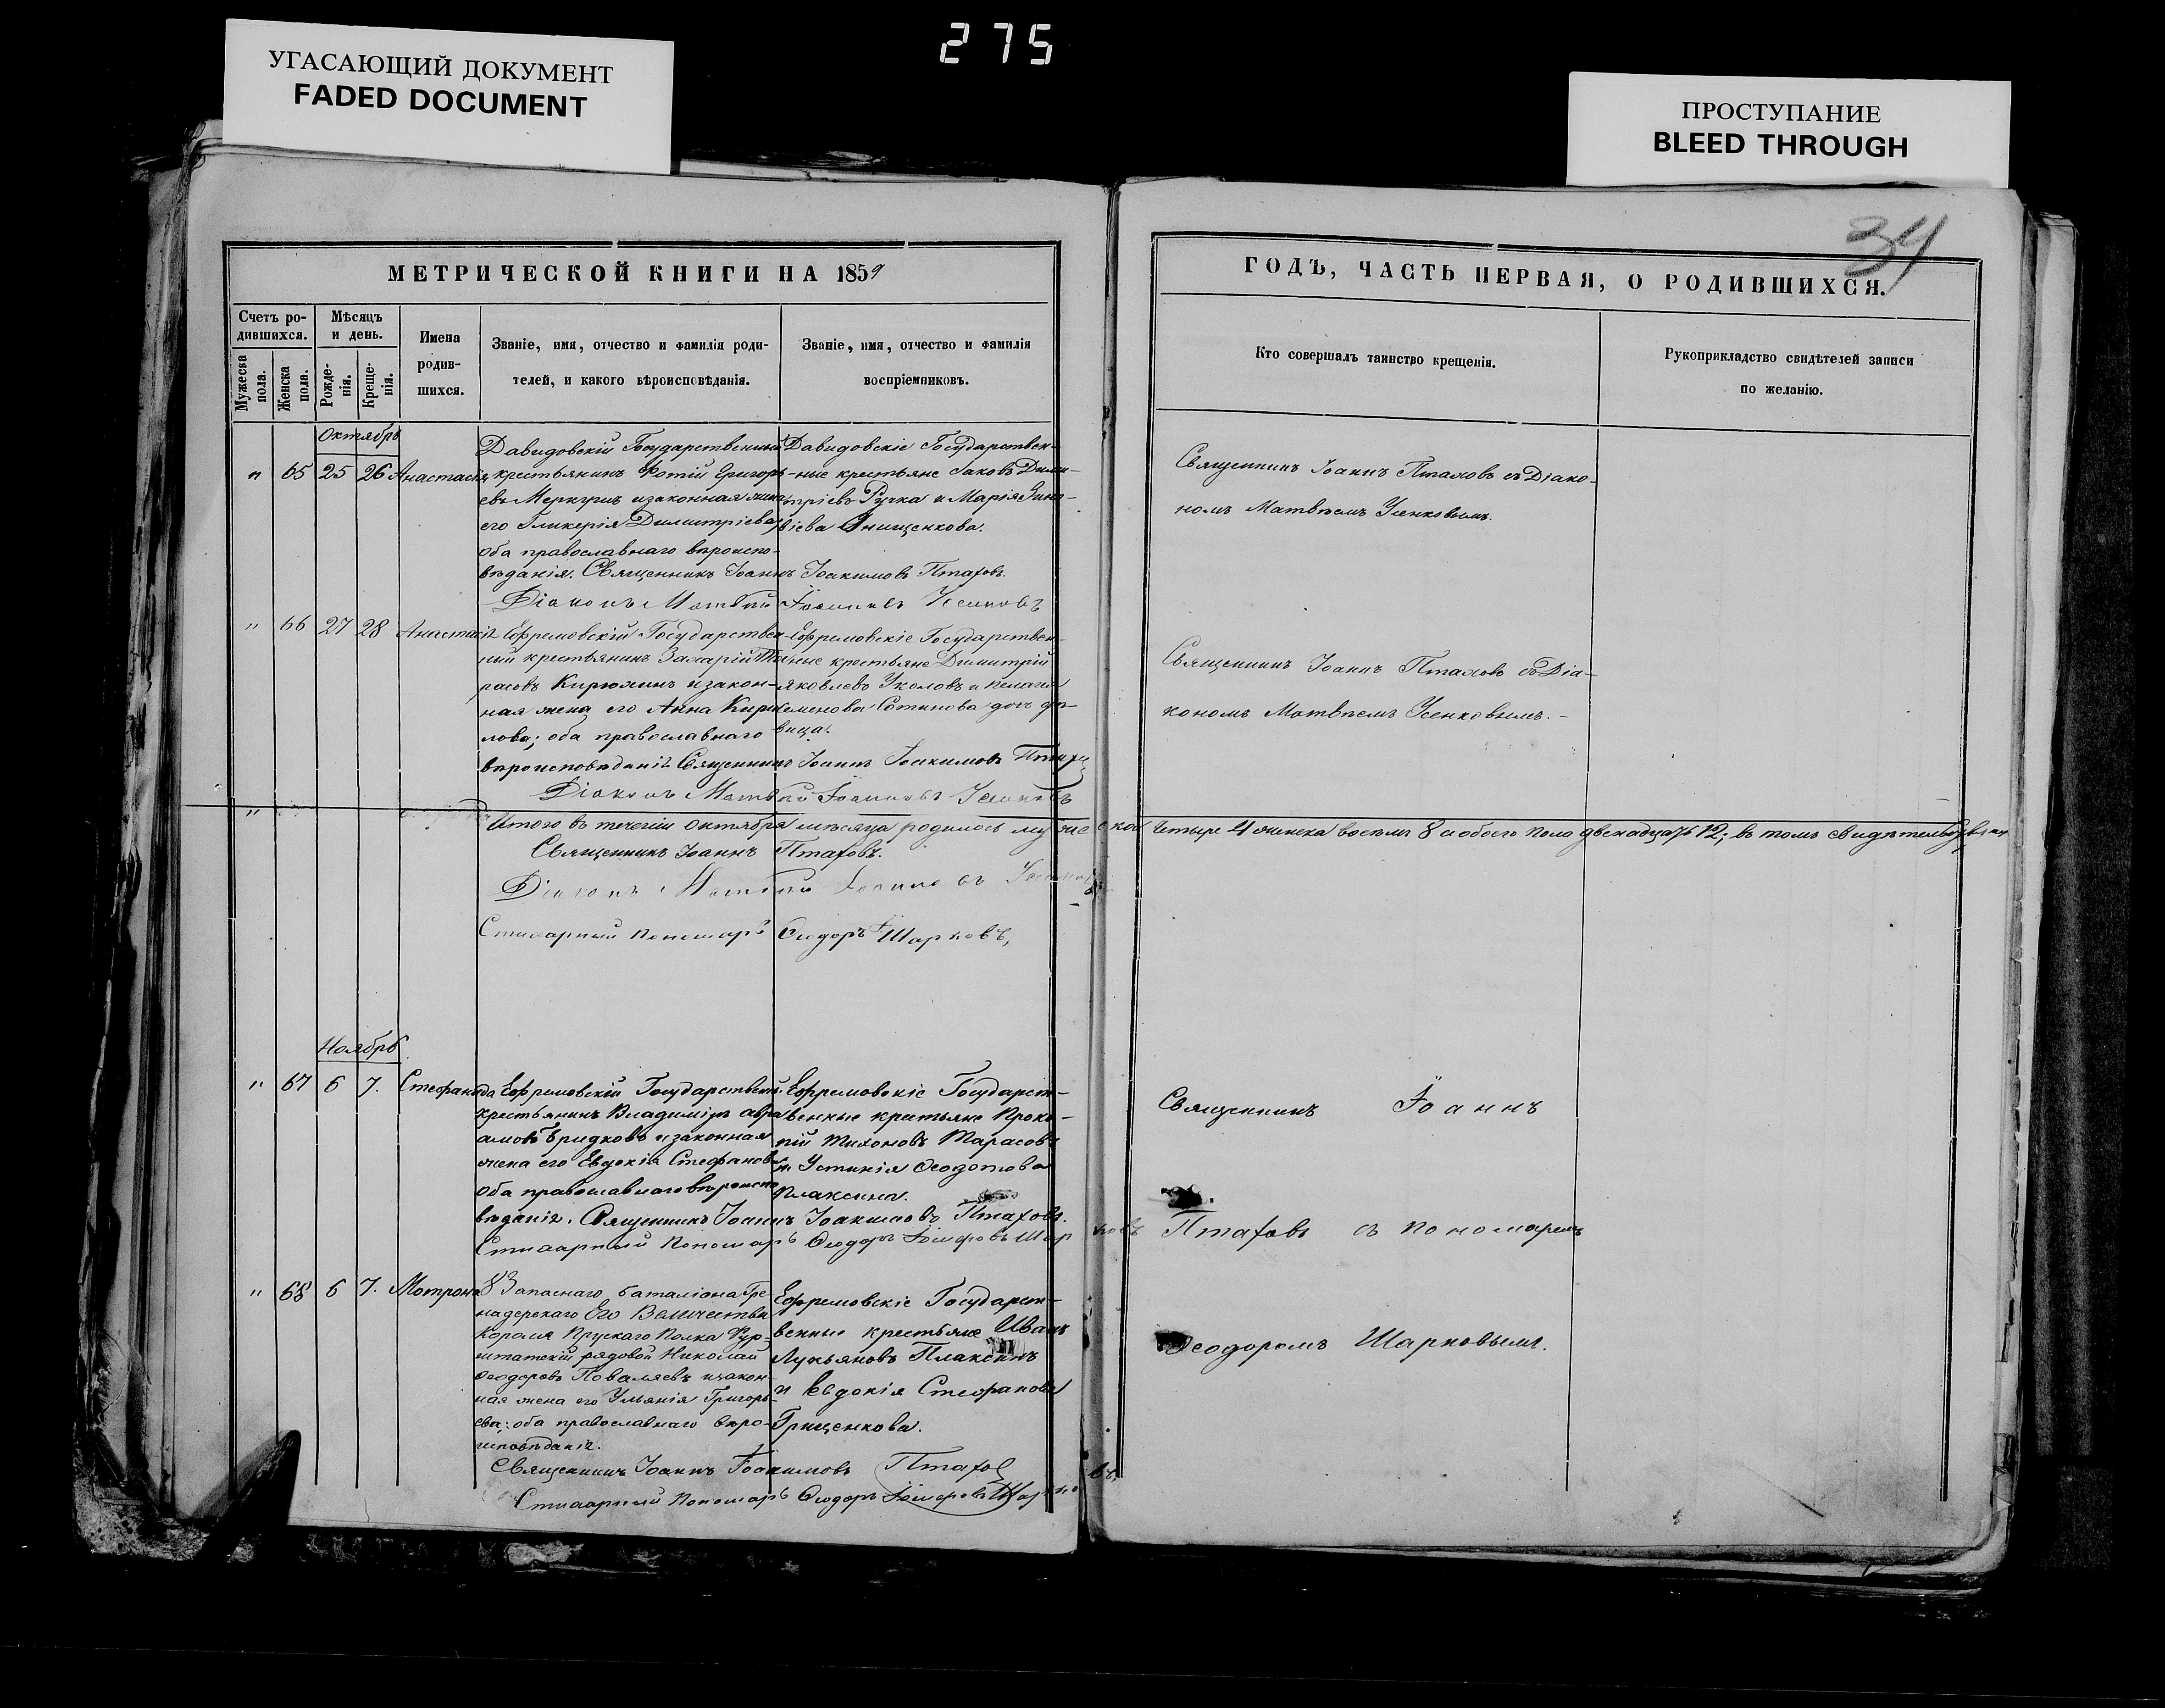 275
УГАСАЮЩИЙ ДОКУМЕНТ
FADED DOCUMENT
ПРОСТУПАНИЕ
BLEED THROUGH
34
МЕТРИЧЕСКОЙ КНИГИ НА 1859
Счетъ ро-
дившихся.
Мужеска пола.
Женска пола.
Мѣсяцъ
и день.
Рожде-
нія.
Креще-
нія.
Имена
родив-
шихся.
Званіе, имя, отчество и фамилія роди-
телей, и какого вѣроисповѣданія.
Званіе, имя, отчество и фамилія
воспріемниковъ.
ГОДЪ, ЧАСТЬ ПЕРВАЯ, О РОДИВШИХСЯ.
Кто совершалъ таинство крещенія.
Рукоприкладство свидѣтелей записи
по желанію.
Октябрь
" 65 25 26 Анастасія
Давидовскій Государственный
крестьянинъ Фотій Григорь-
евъ Меркулъ и законная жена
его Гликерія Димитріева,
оба православнаго вѣроиспо-
вѣданія. Священникъ Іоаннъ Іоакимовъ Птаховъ.
Діаконъ Матвѣй Іоанновъ Усенковъ
Давидовскіе Государствен-
ные крестьяне Іаковъ Дими-
тріевъ Ручка и Марія Зино-
віева Онищенкова.
Священникъ Іоаннъ Птаховъ съ Діако-
номъ Матвѣемъ Усенковымъ.
" 66 27 28 Анастасія
Ефремовскій Государствен-
ный крестьянинъ Захарій Та-
расовъ Кирюхинъ и закон-
ная жена его Анна Кири-
лова; оба православнаго
вѣроисповѣданія Священникъ Іоаннъ Іоакимовъ Птаховъ
Діаконъ Матвѣй Іоанновъ Усенковъ
Ефремовскіе Государствен-
ные крестьяне Димитрій
Яковлевъ Уколовъ и Пелагія
Семенова Сотникова дочь дѣ-
вица.
Священникъ Іоаннъ Птаховъ съ Діа-
кономъ Матвѣемъ Усенковымъ.
Итого въ теченіи Октября мѣсяца родилось мужеска четыре 4 женска восемь 8 а обоего пола двенадцать 12; въ томъ свидѣтельствуемъ
Священникъ Іоаннъ Птаховъ.
Діаконъ Матвѣй Іоанновъ Усенковъ
Стихарный Пономарь Ѳеодоръ Шарковъ,
Ноябрь
" 67 6 7. Стефанида
Ефремовскій Государственный
крестьянинъ Владиміръ Авра-
амовъ Бридковъ и законная
жена его Евдокія Стефанова
оба православнаго вѣроиспо-
вѣданія. Священникъ Іоаннъ Іоакимовъ Птаховъ.
Стихарный Пономарь Ѳеодоръ Шарковъ
Ефремовскіе Государст-
венные крестьяне Проко-
пій Тихоновъ Тарасовъ
и Устинія Ѳеодотова
Плаксина.
Священникъ Іоаннъ
Птаховъ съ Пономаремъ
Ѳеодоромъ Шарковымъ.
" 68 6 7. Мотрона
8 Запаснаго баталіона Гре-
надерскаго Его Величества
Короля Прускаго Полка Фур-
штатскій рядовой Николай
Ѳеодоровъ Поваляевъ и закон-
ная жена его Ульянія Григорь-
ева; оба православнаго вѣро-
исповѣданія.
Священникъ Іоаннъ Іоакимовъ Птаховъ
Стихарный Пономарь Ѳеодоръ Шарковъ
Ефремовскіе Государст-
венные крестьяне Иванъ
Лукьяновъ Плаксинъ
и Евдокія Стефанова
Грищенкова.